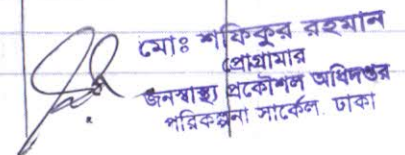 মোঃ শফিকুর রহমান
প্রোগ্রামার
জনস্বাস্থ্য প্রকৌশল অধিদপ্তর
পরিকল্পনা সার্কেল, ঢাকা